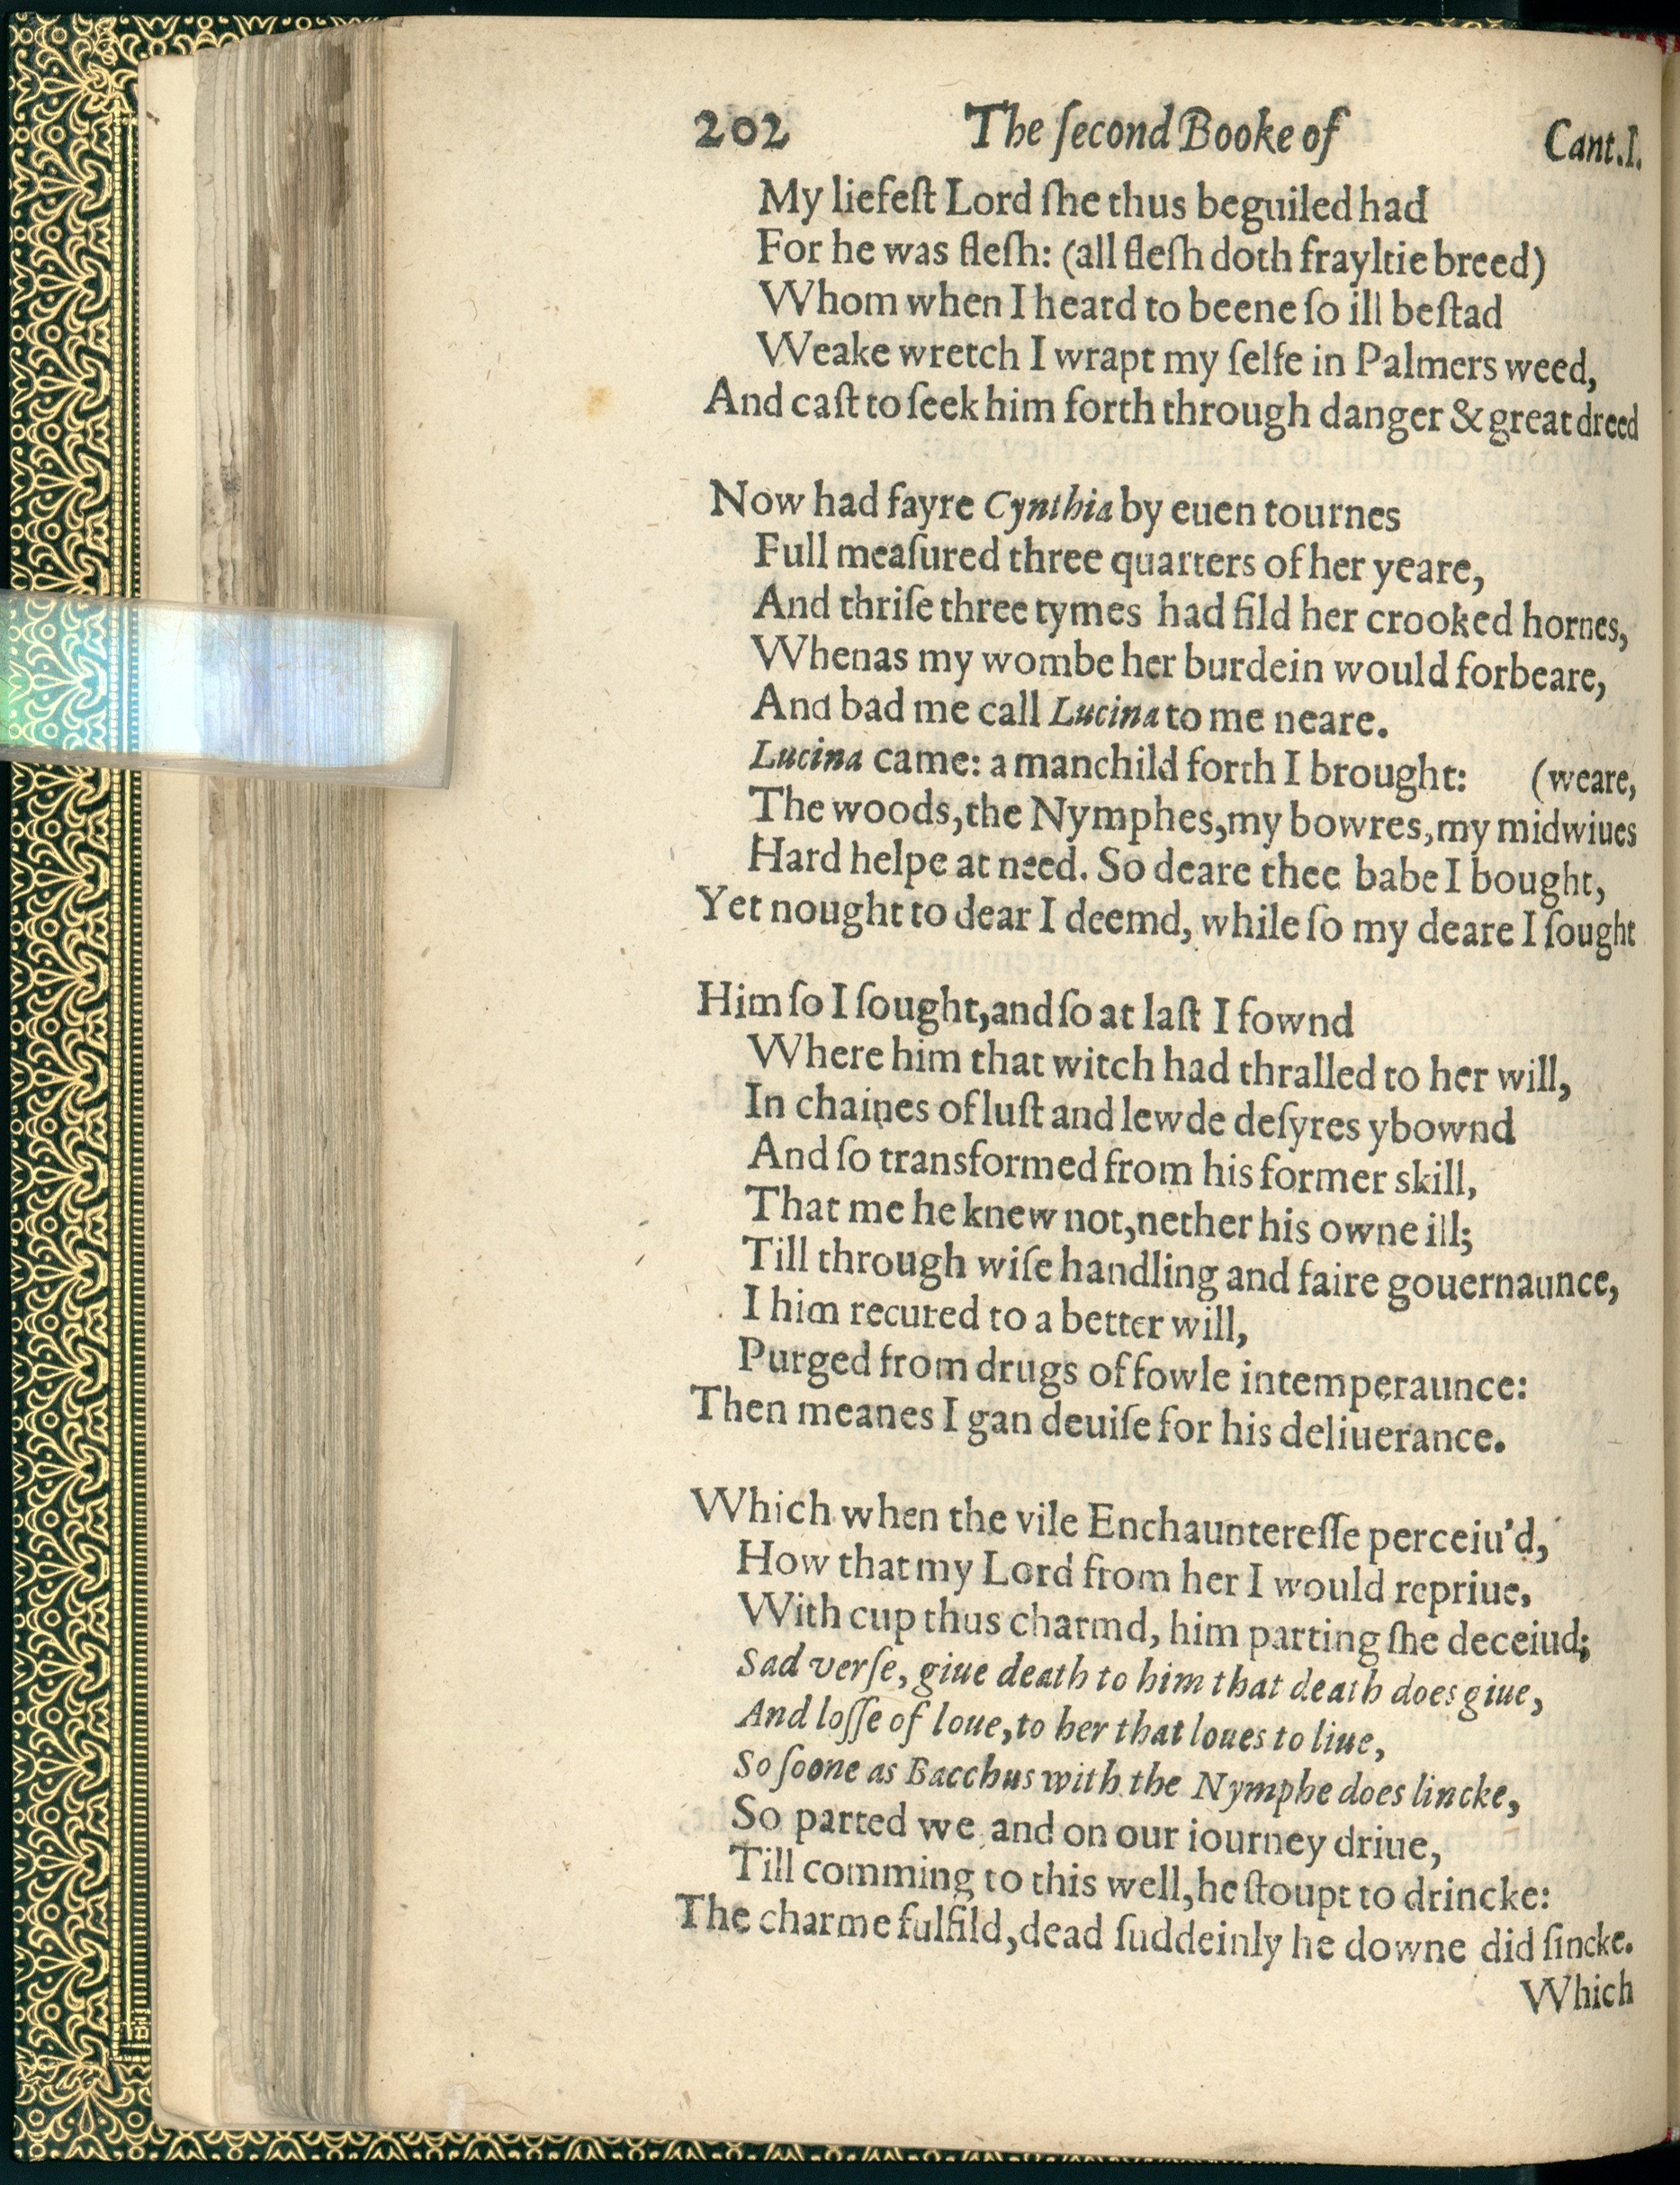 202 The ſecond Booke of Cant.I.
My liefeſt Lord ſhe thus beguiled had
For he was fleſh: (all fleſh doth frayltie breed)
Whom when I heard to beene ſo ill beſtad
Weake wretch I wrapt my ſelfe in Palmers weed,
And caſt to ſeek him forth through danger & great dreed
Now had fayre Cynthia by euen tournes
Full meaſured three quarters of her yeare,
And thriſe three tymes had fild her crooked hornes,
Whenas my wombe her burdein would forbeare,
And bad me call Lucina to me neare.
Lucina came: a manchild forth I brought: (weare,
The woods, the Nymphes, my bowres, my midwiues
Hard helpe at need. So deare thee babe I bought,
Yet nought to dear I deemd, while ſo my deare I ſought
Him ſo I ſought, and ſo at laſt I fownd
Where him that witch had thralled to her will,
In chaines of luſt and lewde deſyres ybownd
And ſo transformed from his former skill,
That me he knew not, nether his owne ill;
Till through wiſe handling and faire gouernaunce,
I him recured to a better will,
Purged from drugs of fowle intemperaunce:
Then meanes I gan deuiſe for his deliuerance.
Which when the vile Enchauntereſſe perceiu'd,
How that my Lord from her I would repriue,
With cup thus charmd, him parting ſhe deceiud;
Sad verſe, giue death to him that death does giue,
And loſſe of loue, to her that loues to liue,
So ſoone as Bacchus with the Nymphe does lincke,
So parted we and on our iourney driue,
Till comming to this well, he ſtoupt to drincke:
The charme fulfild, dead ſuddeinly he downe did ſincke.
Which